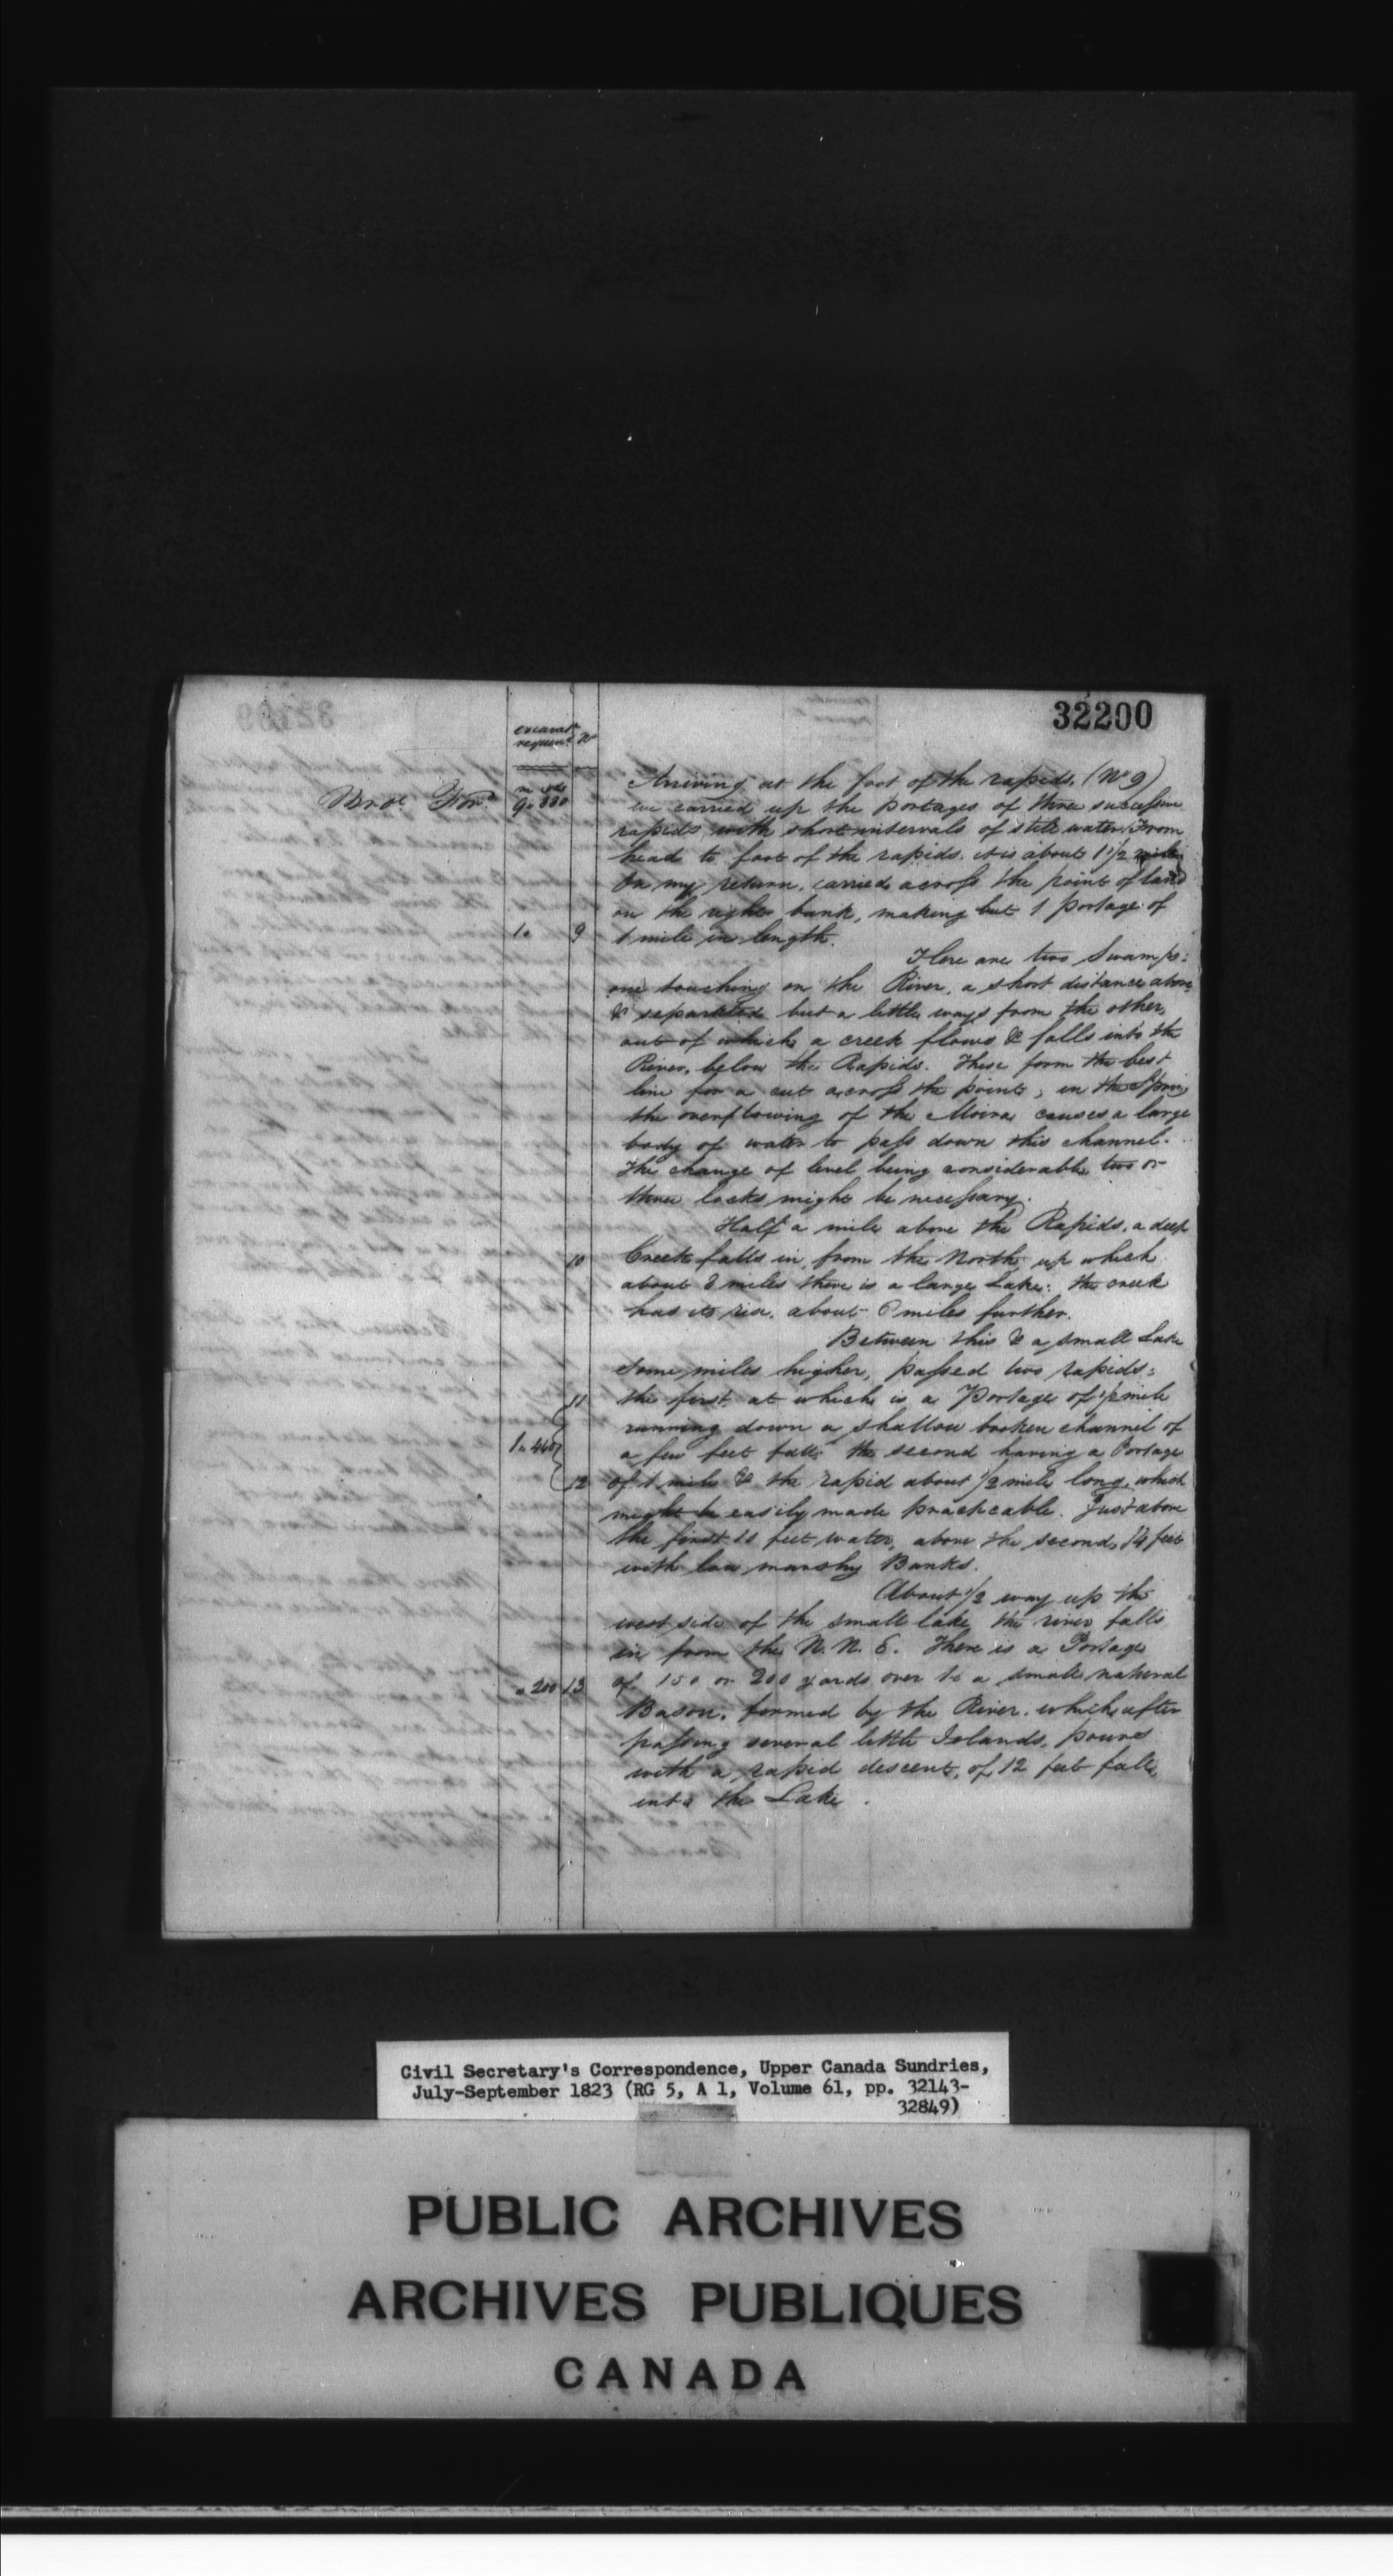 32200
excavatn
requird
No
m yds
9. 880
Brot Ford
Arriving at the foot of the rapids, (No 9)
we carried up the portages of three successive
rapids with short intervals of still water. From
head to foot of the rapids, it is about 1 1/2 mile
On my return, carried across the point of land
on the right bank, making but 1 portage of
1. 9 1 mile in length.
Here are two Swamps:
one touching on the River, a short distance above
& separated but a little ways from the other,
out of which a creek flows & falls into the
River, below the Rapids. These form the best
line for a cut across the point, in the Spring
the overflowing of the Moira causes a large
body of water to pass down this channel.
The change of level being considerable two or
three locks might be necessary.
Half a mile above the Rapids, a deep
10 Creek falls in, from the North, up which
about 2 miles there is a large Lake: the creek
has its rise, about 6 miles further.
Between this & a small Lake
some miles higher, passed two rapids:
11 the first at which is a Portage of 1/2 mile
running down a shallow broken channel of
1. 440 a few feet fall: the second having a Portage
12 of 1 mile & the rapid about 1/2 mile long, which
might be easily made practicable. Just above
the first 11 feet water, above the second, 14 feet
with low marshy Banks.
About 1/2 way up the
west side of the small lake the river falls
in from the N. N. E. There is a Portage
" 200 13 of 150 or 200 yards over to a small natural
Bason, formed by the River, which after
passing several little Islands, pours
with a rapid descent, of 12 feet fall,
into the Lake.
Civil Secretary's Correspondence, Upper Canada Sundries,
July-September 1823 (RG 5, A 1, Volume 61, pp. 32143-
32849)
PUBLIC ARCHIVES
ARCHIVES PUBLIQUES
CANADA